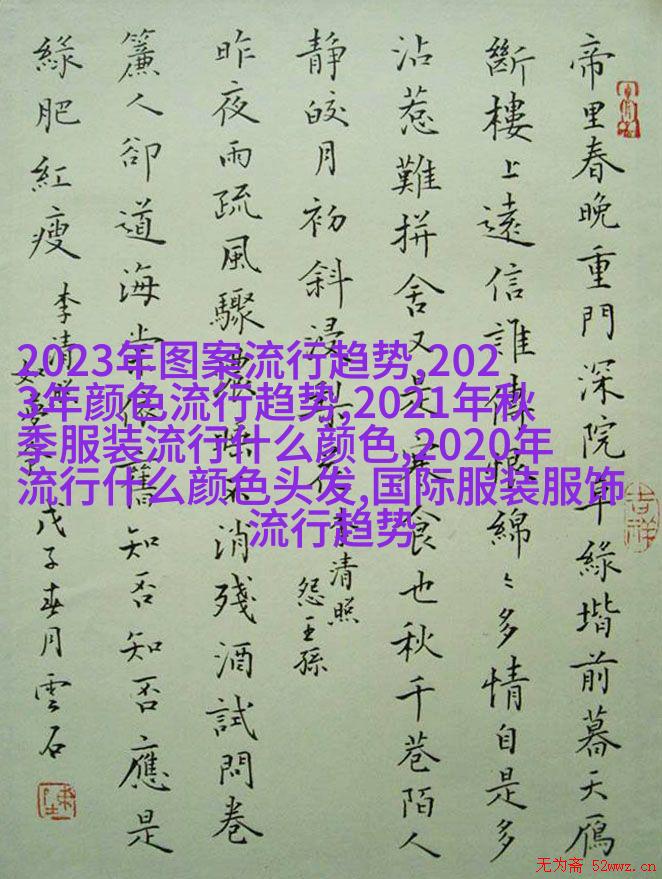 帝里春晚重門深院草綠堦前暮天鴈
斷樓上遠信誰傳恨綿〻多情自是多
沾惹難拼舍又是寒食也秋千巷陌人
靜皎月初斜浸梨花
李清照
怨王孫
昨夜雨疏風驟濃睡不消殘酒試問卷
簾人卻道海棠依舊知否知否應是
綠肥紅瘦
李清照
如夢令
戊子春月雲石
2023年图案流行趋势,202
3年颜色流行趋势,2021年秋
季服装流行什么颜色,2020年
流行什么颜色头发,国际服装服饰
流行趋势
吉祥
无为斋 52wwz.cn